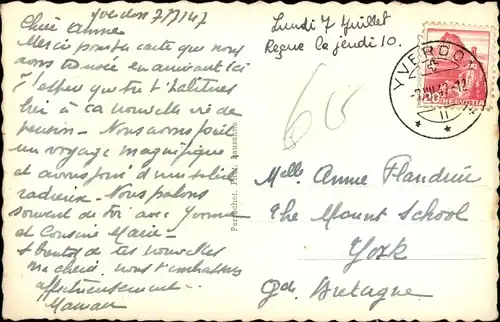 Yverdon 7/7/47
Lundi 7 Juillet
Reçue le jeudi 10.
Chère Anne
Merci pour ta carte que nous
avons trouvée en arrivant ici
J'espère que tu t'habitues
bien à ta nouvelle vie de
pension - Nous avons fait
un voyage magnifique
et avons joui d'un soleil
radieux - Nous parlons
souvent de toi avec Yvonne
et Cousine Marie -
à bientôt de tes nouvelles
ma chérie, nous t'embrassons
affectueusement -
Maman
60
YVERDON
HELVETIA
Perrochet, Lausanne
Melle Anne Flandrin
The Mount School
York
Gde. Bretagne